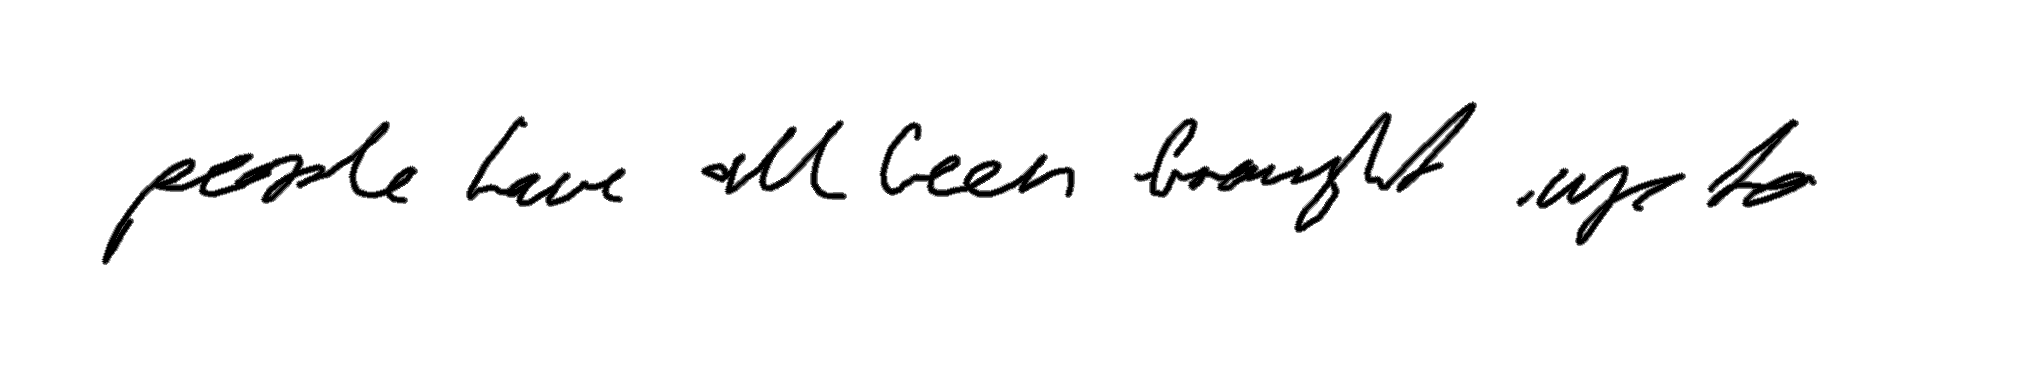 people have all been brought up to